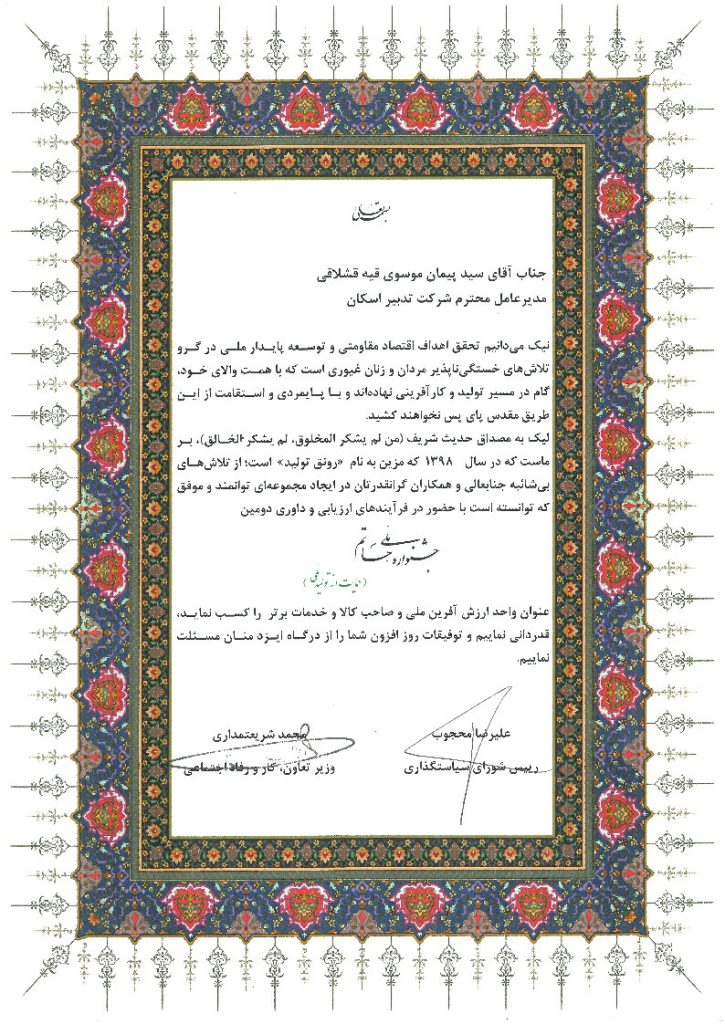 بسمه تعالی
جناب آقای سید پیمان موسوی قیه قشلاقی
مدیرعامل محترم شرکت تدبیر اسکان
نیک می‌دانیم تحقق اهداف اقتصاد مقاومتی و توسعه پایدار ملی در گرو
تلاش‌های خستگی‌ناپذیر مردان و زنان غیوری است که با همت والای خود،
گام در مسیر تولید و کارآفرینی نهاده‌اند و با پایمردی و استقامت از این
طریق مقدس پای پس نخواهند کشید.
لیک به مصداق حدیث شریف (من لم یشکر المخلوق، لم یشکر الخالق)، بر
ماست که در سال ۱۳۹۸ که مزین به نام «رونق تولید» است؛ از تلاش‌های
بی‌شائبه جنابعالی و همکاران گرانقدرتان در ایجاد مجموعه‌ای توانمند و موفق
که توانسته است با حضور در فرآیندهای ارزیابی و داوری دومین
جشنواره ملی حاتم
(حمایت از تولید ملی)
عنوان واحد ارزش آفرین ملی و صاحب کالا و خدمات برتر را کسب نماید،
قدردانی نماییم و توفیقات روز افزون شما را از درگاه ایزد منان مسئلت
نماییم.
علیرضا محجوب
رییس شورای سیاستگذاری
محمد شریعتمداری
وزیر تعاون، کار و رفاه اجتماعی